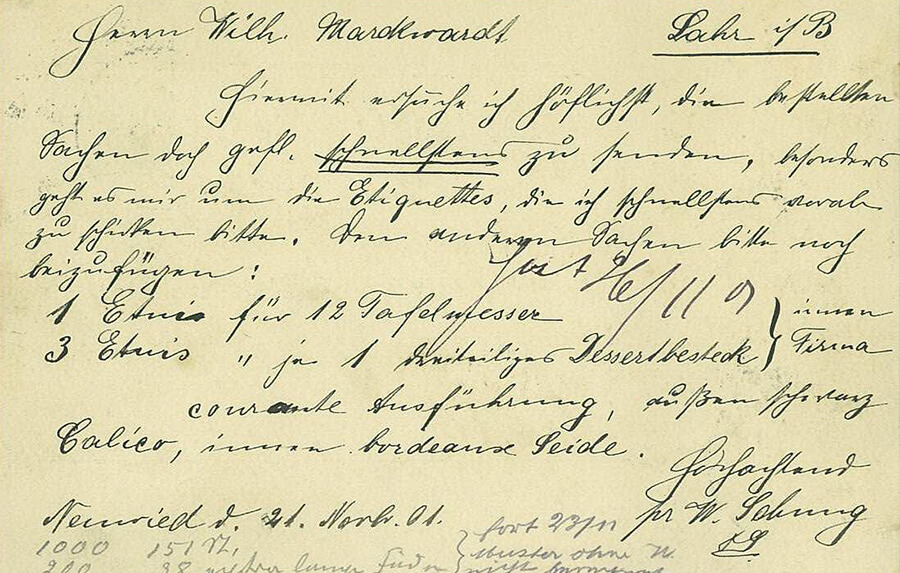 Herrn Wilh. Markwardt Lahr i/B
Hiermit ersuche ich höflichst, die bestellten
Sachen doch gefl. schnellstens zu senden, besonders
geht es mir um die Etiquettes, die ich schnellstens vorab
zu schicken bitte. Den anderen Sachen bitte noch
beizufügen:
fort 26/11 01
1 Etuis für 12 Tafelmesser
3 Etuis " je 1 dreiteiliges Dessertbesteck } innen Firma
courante Ausführung, außen schwarz
Calico, innen bordeaux Seide.
Hochachtend
Neuwied d. 21. Novb. 01. pr W. Sebung
1000 151 fort 23/11
200 38 extra lange Muster ohne N.
nicht